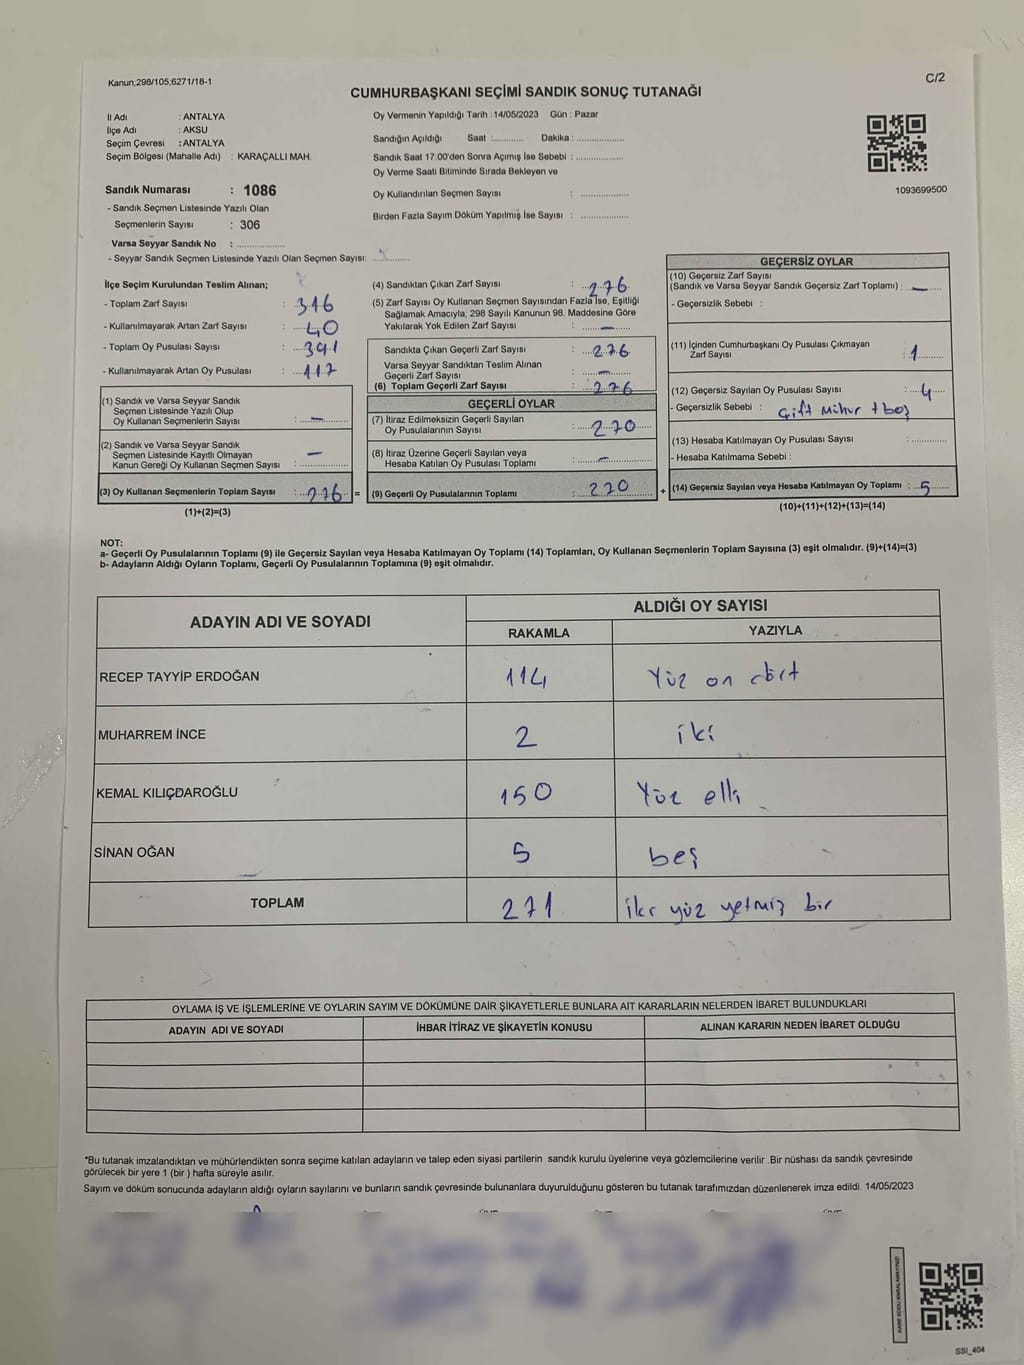 Kanun;298/105,6271/18-1
C/2
CUMHURBAŞKANI SEÇİMİ SANDIK SONUÇ TUTANAĞI
İl Adı : ANTALYA
İlçe Adı : AKSU
Seçim Çevresi : ANTALYA
Seçim Bölgesi (Mahalle Adı) : KARAÇALLI MAH.
Oy Vermenin Yapıldığı Tarih : 14/05/2023 Gün : Pazar
Sandığın Açıldığı Saat :........... Dakika :................
Sandık Saat 17:00'den Sonra Açımış İse Sebebi :................
Oy Verme Saati Bitiminde Sırada Bekleyen ve
Oy Kullandırılan Seçmen Sayısı : ................
Birden Fazla Sayım Döküm Yapılmış İse Sayısı : ................
1093699500
Sandık Numarası : 1086
- Sandık Seçmen Listesinde Yazılı Olan
Seçmenlerin Sayısı : 306
Varsa Seyyar Sandık No : ................
- Seyyar Sandık Seçmen Listesinde Yazılı Olan Seçmen Sayısı: ............
İlçe Seçim Kurulundan Teslim Alınan;
- Toplam Zarf Sayısı : 316
- Kullanılmayarak Artan Zarf Sayısı : 40
- Toplam Oy Pusulası Sayısı : 391
- Kullanılmayarak Artan Oy Pusulası : 117
(1) Sandık ve Varsa Seyyar Sandık
Seçmen Listesinde Yazılı Olup
Oy Kullanan Seçmenlerin Sayısı : —
(2) Sandık ve Varsa Seyyar Sandık
Seçmen Listesinde Kayıtlı Olmayan
Kanun Gereği Oy Kullanan Seçmen Sayısı : —
(3) Oy Kullanan Seçmenlerin Toplam Sayısı : 276 =
(1)+(2)=(3)
(4) Sandıktan Çıkan Zarf Sayısı : 276
(5) Zarf Sayısı Oy Kullanan Seçmen Sayısından Fazla İse, Eşitliği
Sağlamak Amacıyla; 298 Sayılı Kanunun 98. Maddesine Göre
Yakılarak Yok Edilen Zarf Sayısı : —
Sandıkta Çıkan Geçerli Zarf Sayısı : 276
Varsa Seyyar Sandıktan Teslim Alınan
Geçerli Zarf Sayısı : —
(6) Toplam Geçerli Zarf Sayısı : 276
GEÇERLİ OYLAR
(7) İtiraz Edilmeksizin Geçerli Sayılan
Oy Pusulalarının Sayısı : 270
(8) İtiraz Üzerine Geçerli Sayılan veya
Hesaba Katılan Oy Pusulası Toplamı : —
(9) Geçerli Oy Pusulalarının Toplamı : 270 +
GEÇERSİZ OYLAR
(10) Geçersiz Zarf Sayısı
(Sandık ve Varsa Seyyar Sandık Geçersiz Zarf Toplamı) : —
- Geçersizlik Sebebi :
(11) İçinden Cumhurbaşkanı Oy Pusulası Çıkmayan
Zarf Sayısı : 1
(12) Geçersiz Sayılan Oy Pusulası Sayısı : 4
- Geçersizlik Sebebi : Çift Mühür + boş
(13) Hesaba Katılmayan Oy Pusulası Sayısı : ............
- Hesaba Katılmama Sebebi :
(14) Geçersiz Sayılan veya Hesaba Katılmayan Oy Toplamı : 5
(10)+(11)+(12)+(13)=(14)
NOT:
a- Geçerli Oy Pusulalarının Toplamı (9) ile Geçersiz Sayılan veya Hesaba Katılmayan Oy Toplamı (14) Toplamları, Oy Kullanan Seçmenlerin Toplam Sayısına (3) eşit olmalıdır. (9)+(14)=(3)
b- Adayların Aldığı Oyların Toplamı, Geçerli Oy Pusulalarının Toplamına (9) eşit olmalıdır.
ADAYIN ADI VE SOYADI
ALDIĞI OY SAYISI
RAKAMLA YAZIYLA
RECEP TAYYİP ERDOĞAN 114 Yüz on dört
MUHARREM İNCE 2 iki
KEMAL KILIÇDAROĞLU 150 Yüz elli
SİNAN OĞAN 5 beş
TOPLAM 271 iki yüz yetmiş bir
OYLAMA İŞ VE İŞLEMLERİNE VE OYLARIN SAYIM VE DÖKÜMÜNE DAİR ŞİKAYETLERLE BUNLARA AİT KARARLARIN NELERDEN İBARET BULUNDUKLARI
ADAYIN ADI VE SOYADI İHBAR İTİRAZ VE ŞİKAYETİN KONUSU ALINAN KARARIN NEDEN İBARET OLDUĞU
*Bu tutanak imzalandıktan ve mühürlendikten sonra seçime katılan adayların ve talep eden siyasi partilerin sandık kurulu üyelerine veya gözlemcilerine verilir .Bir nüshası da sandık çevresinde
görülecek bir yere 1 (bir ) hafta süreyle asılır.
Sayım ve döküm sonucunda adayların aldığı oyların sayılarını ve bunların sandık çevresinde bulunanlara duyurulduğunu gösteren bu tutanak tarafımızdan düzenlenerek imza edildi. 14/05/2023
KARE KODU KARALAMAYINIZ!
SSI_404